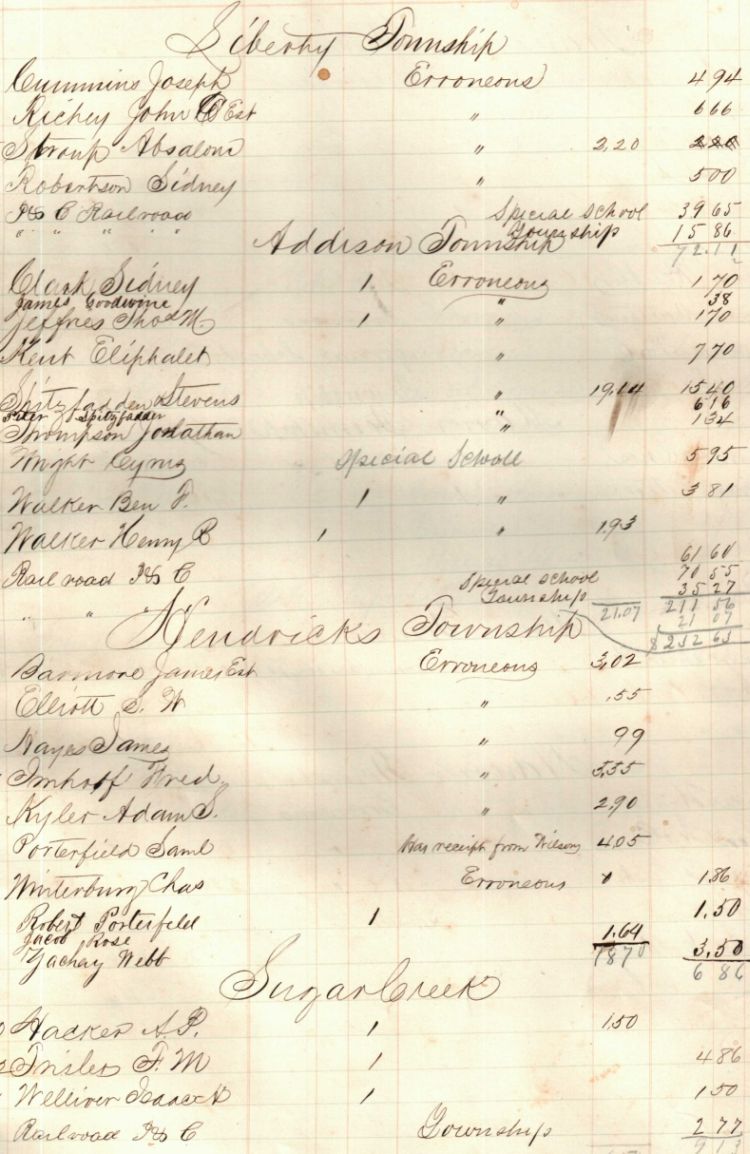 Liberty Township
Cummins Joseph Erroneous 4 94
Richey John Est " 6 66
Stroup Absalom " 2,20 2 20
Robertson Sidney " 5 00
I & C Railroad Special School 39 65
" " " " Township 15 86
72.11
Addison Township
Clark Sidney 1 Erroneous 1 70
James Goodwine " 38
Jeffries Thos M. 1 " 1 70
Kent Eliphalet " 7 70
Spitzfadden Stevens " 19.14 15 40
Peter Spitzfadden " 6 16
Thompson Jonathan " 1 34
Wright Cyrus Special Scholl 5 95
Walker Ben F. 1 " 3 81
Walker Henry B 1 " 1.93
61 60
Rail road I & C Special School 70 55
" " " Township 35 27
21.07 211 56
21 07
$ 232 63
Hendricks Township
Barmore James Est Erroneous 3,02
Elliott S. W " .55
Hayes James " 99
Imhoff Fred " 5,55
Kyler Adam S. " 2,90
Porterfield Saml Has receipt from Wilson 4.05
Winterburg Chas Erroneous 1 1.86
Robert Porterfeld 1 1.50
Jacob Rose 1.64
Zachay Webb 18 70 3.50
6 86
Sugar Creek
Hacker A. P. 1 1.50
Trisler F. M 1 4 86
Welliver Isaac H 1 1 50
Railroad I & C Township 2 77
9 13